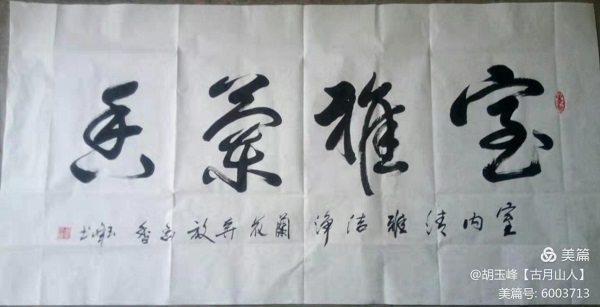 室雅兰香
室内清雅洁净兰花开放幽香 玉峰书
美篇
@胡玉峰【古月山人】
美篇号: 6003713